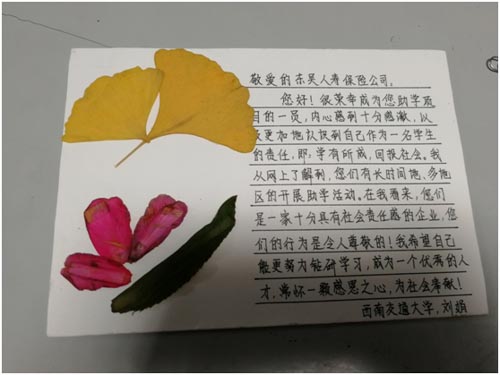 敬爱的东吴人寿保险公司：
您好！很荣幸成为您助学项
目的一员，内心感到十分感激，以
及更加地认识到自己作为一名学生
的责任，即：学有所成，回报社会。我
从网上了解到，您们有长时间地，多地
区的开展助学活动。在我看来，您们
是一家十分具有社会责任感的企业，您
们的行为是令人尊敬的！我希望自己
能更努力钻研学习，成为一个优秀的人
才，常怀一颗感恩之心，为社会奉献！
西南交通大学，刘娟